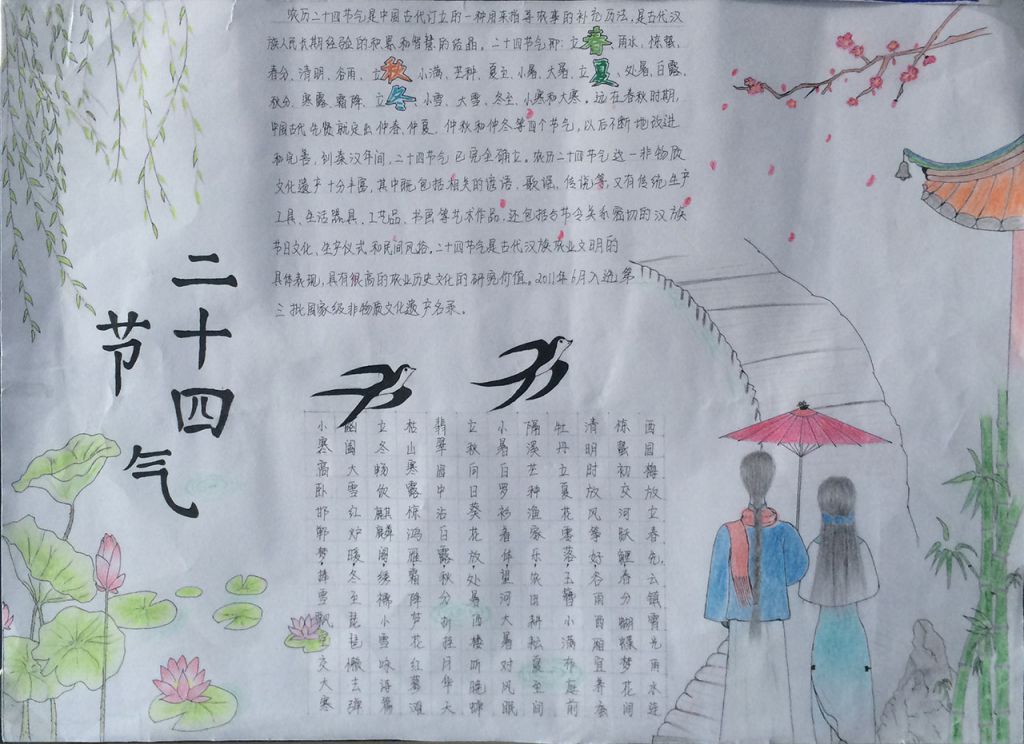 农历二十四节气是中国古代订立的一种用来指导农事的补充历法，是古代汉
族人民长期经验的积累和智慧的结晶。二十四节气即：立春、雨水、惊蛰、
春分、清明、谷雨、立秋、小满、芒种、夏至、小暑、大暑、立夏、处暑、白露、
秋分、寒露、霜降、立冬、小雪、大雪、冬至、小寒和大寒。远在春秋时期，
中国古代先贤就定出仲春、仲夏、仲秋和仲冬等四个节气，以后不断地改进
和完善，到秦汉年间，二十四节气已完全确立。农历二十四节气这一非物质
文化遗产十分丰富，其中既包括相关的谚语、歌谣、传说等，又有传统生产
工具、生活器具、工艺品、书画等艺术作品，还包括与节令关系密切的汉族
节日文化、生产仪式和民间风俗。二十四节气是古代汉族农业文明的
具体表现，具有很高的农业历史文化的研究价值。2011年6月入选第
三批国家级非物质文化遗产名录。
二十四
节气
西园梅放立春先，云镇霄光雨水连
惊蛰初交河跃鲤，春分蝴蝶梦花间
清明时放风筝好，谷雨西厢宜养蚕
牡丹立夏花零落，玉簪小满布庭前
隔溪芒种渔家乐，农田耕松夏至间
小暑白罗衫着体，望河大暑对风眠
立秋向日葵花放，处暑西楼听晚蝉
翡翠园中沾白露，秋分折桂月华天
枯山寒露惊鸿雁，霜降芦花红蓼滩
立冬畅饮麒麟阁，绣襦小雪咏诗篇
幽阖大雪红炉暖，冬至琵琶懒去弹
小寒高卧邯郸梦，捧雪飘空交大寒